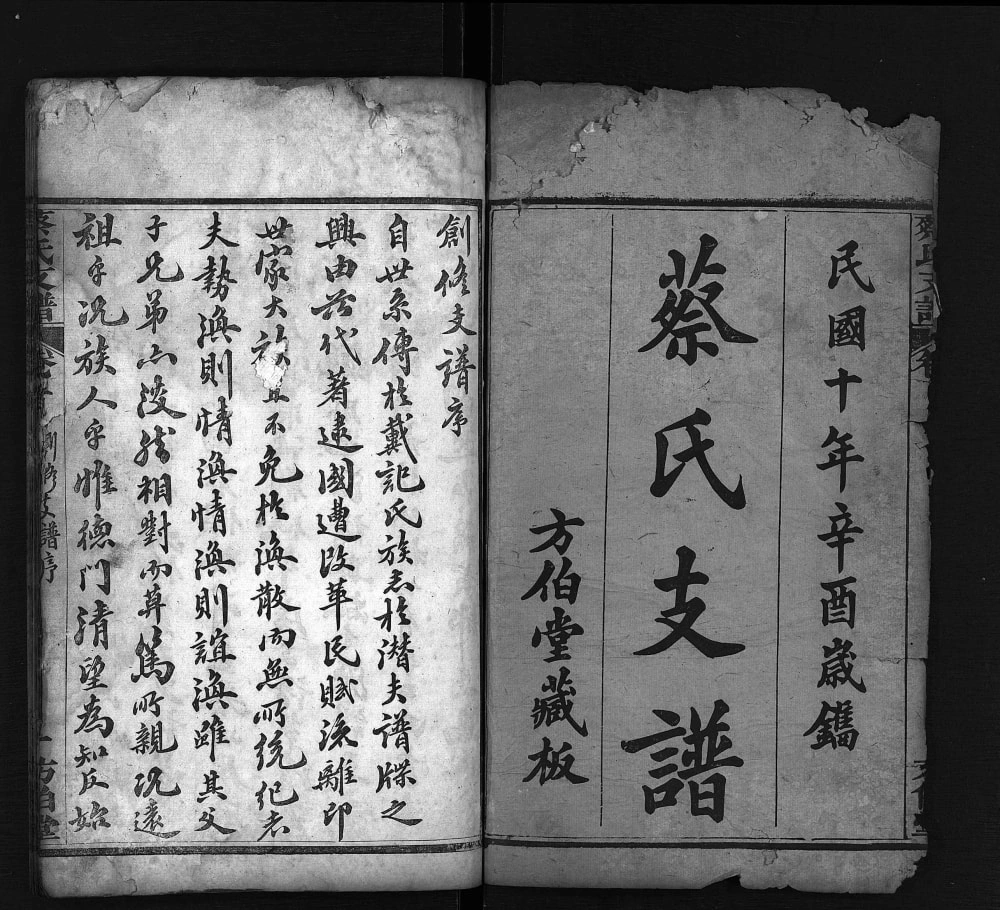 民國十年辛酉歲鐫
蔡氏支譜
方伯堂藏板
創修支譜序
自世系傳於戴記氏族志於潛夫譜牒之
興由茲代著逮國遭改革民賦流離即
世家大族且不免於渙散而無所統紀者
夫勢渙則情渙情渙則誼渙雖其父
子兄弟亦沒然相對而莫篤所親況遠
祖乎況族人乎惟德門清望為知反始
蔡氏支譜
創修支譜序
一
方伯堂